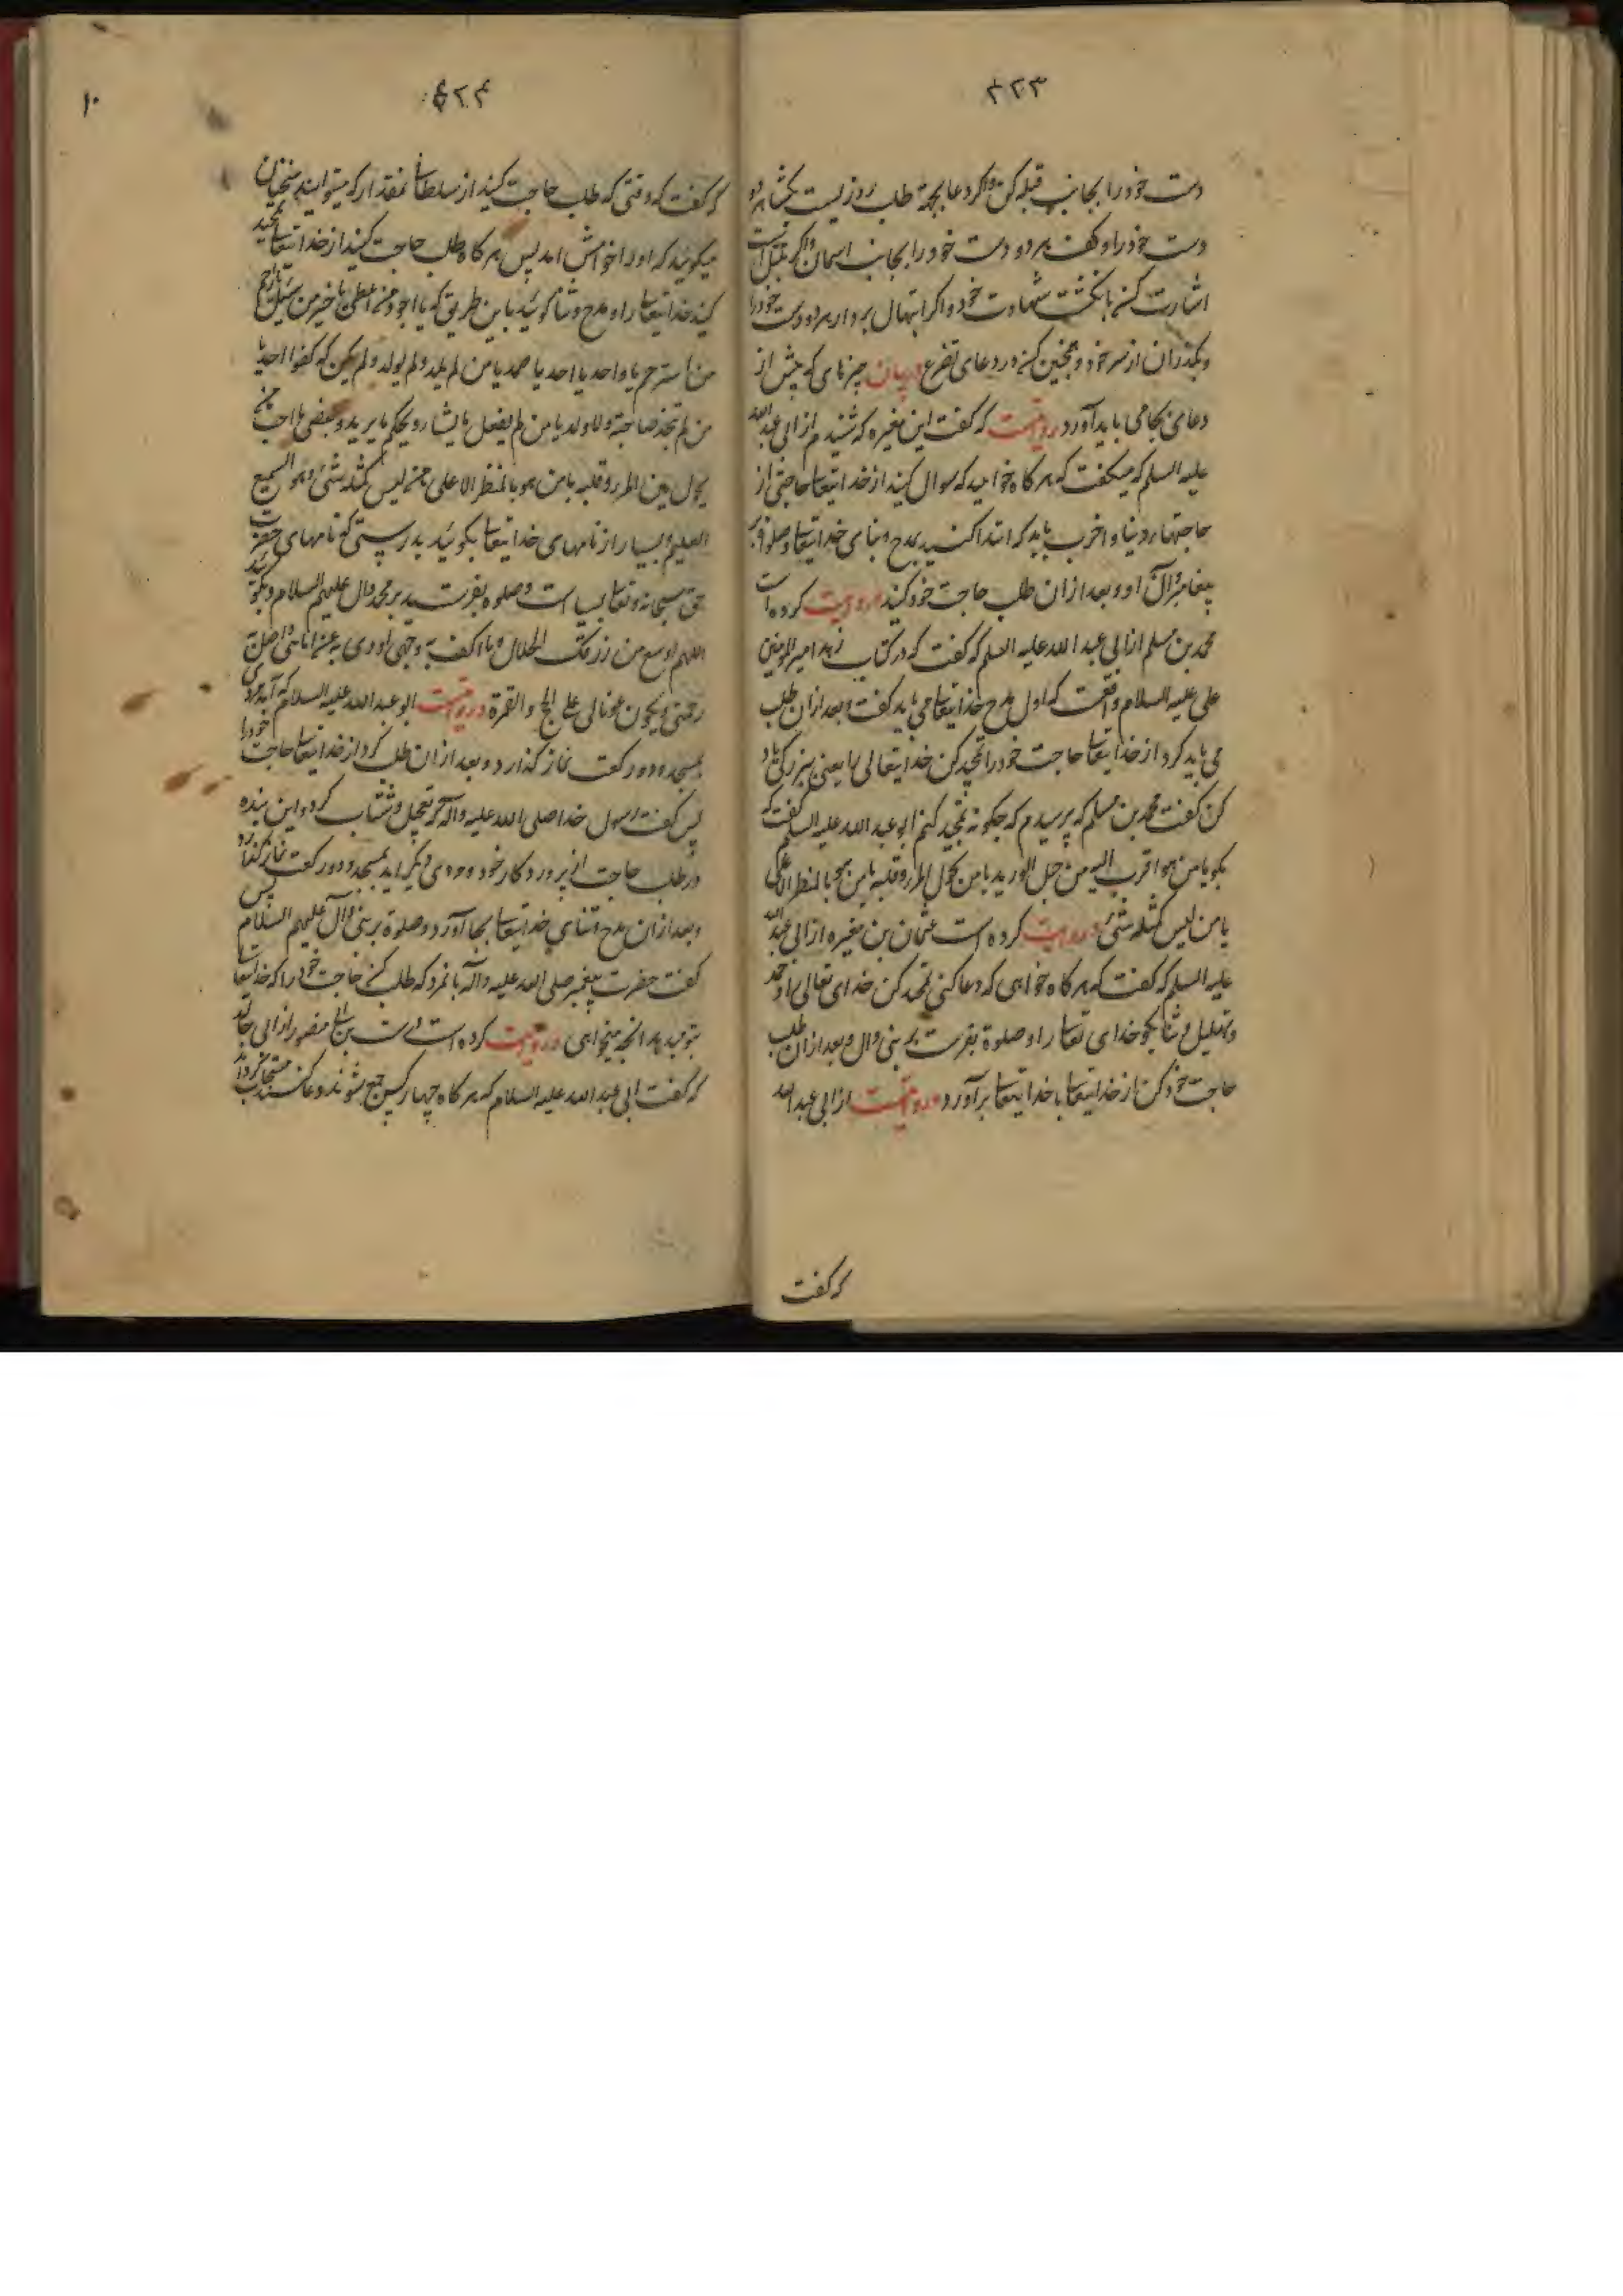 ۴۲۳
دست خود را بجانب قبله کن و اگر دعا بجهة طلب روزیست بکشا هر دو
دست خود را و کف هر دو دست خود را بجانب اسمان و اگر
اشارت کن بانکشت شهادت خود و اگر ابتهال بردار هر دو دست خود را
و بکذران از سر خود و همچنین کن در دعای تضرع در بیان چیزهای که پیش از
دعا می باید آورد روایتست که کفت ابن مغیره که شنیدم از ابی عبد الله
علیه السلم که میکفت که هر کاه خواهید که سوال کنید از خدایتعالی حاجتی از
حاجتها دنیا و اخرت باید که ابتدا کنید بمدح و ثنای خدایتعالی و صلوة بر
پیغامبر و آل او و بعد ازان طلب حاجت خود کنید و روایت کرده است
محمد بن مسلم از ابی عبد الله علیه السلم که کفت که در کتاب امیر المومنین
علی علیه السلام واقعست که اول مدح خدایتعالی می باید کفت و بعد ازان طلب
می باید کرد از خدایتعالی حاجت خود را تمجید کن خدایتعالی را یعنی ببزرکی یاد
کن کفت محمد بن مسلم که پرسیدم که چکونه تمجید کنم ابو عبد الله علیه السلم کفت که
بکو یا من هو اقرب الی من حبل الورید یا من یحول المرء و قلبه یا من هو بالمنظر الاعلی
یا من لیس کمثله شئ و روایت کرده است عثمان بن مغیره از ابی عبد الله
علیه السلم که کفت که هر کاه خواهی که دعا کنی تمجید کن خدای تعالی را و حمد
و تهلیل و ثنا بکو خدای تعالی را و صلوة بفرست بر نبی و ال و بعد ازان طلب
حاجت خود کن از خدایتعالی تا خدایتعالی برآورد و روایتست از ابی عبد الله
که کفت
۴۲۴
۱۰
که کفت که وقتی که طلب حاجت کنید از سلطان انمقدار که میتوانید سخنان
میکوئید که او را خوامش امد پس هر کاه طلب حاجت کنید از خدایتعالی تمجید
کنید خدایتعالی را و مدح و ثنا کوئید باین طریق که یا اجود من اعطی یا خیر من سئل یا ارحم
من استرحم یا واحد یا احد یا صمد یا من لم یلد و لم یولد و لم یکن له کفوا احد یا
من لم یتخذ صاحبة ولا ولدا یا من یفعل ما یشاء و یحکم ما یرید و یقضی ما احب یا من
یحول بین المرء و قلبه یا من هو بالمنظر الاعلی یا من لیس کمثله شئ و هو السمیع
العلیم و بسیار از نامهای خدایتعالی بکوئید بدرستی که نامهای حضرت
حق سبحانه و تعالی بسیار است و صلوة بفرستید بر محمد و ال علیهم السلام و بکوئید
اللهم اوسع من رزقک الحلال ما اکف به وجهی و اودی به عن امانتی و اصل به
رحمتی و یکون عونا لی علی الحج و العمرة و روایتست ابو عبد الله علیه السلام که آمد مردی
بمسجد و دو رکعت نماز کذارد و بعد ازان طلب کرد از خدایتعالی حاجت خود را
پس کفت رسول خدا صلی الله علیه و آله که تعجیل و شتاب کرد این بنده
در طلب حاجت از پروردکار خود و مردی دیکر امد بمسجد و دو رکعت نماز کذارد
و بعد ازان مدح و ثنای خدایتعالی بجا آورد و صلوة بر نبی و آل علیهم السلام پس
کفت حضرت پیغمبر صلی الله علیه و آله بانمرد که طلب کن حاجت خود را که خدایتعالی
بتو میدهد انچه میخواهی و روایت کرده است منصور از ابی خالد
که کفت ابی عبد الله علیه السلام که هر کاه چهار کس جمع شوند و دعا کنند مستجاب کرداند